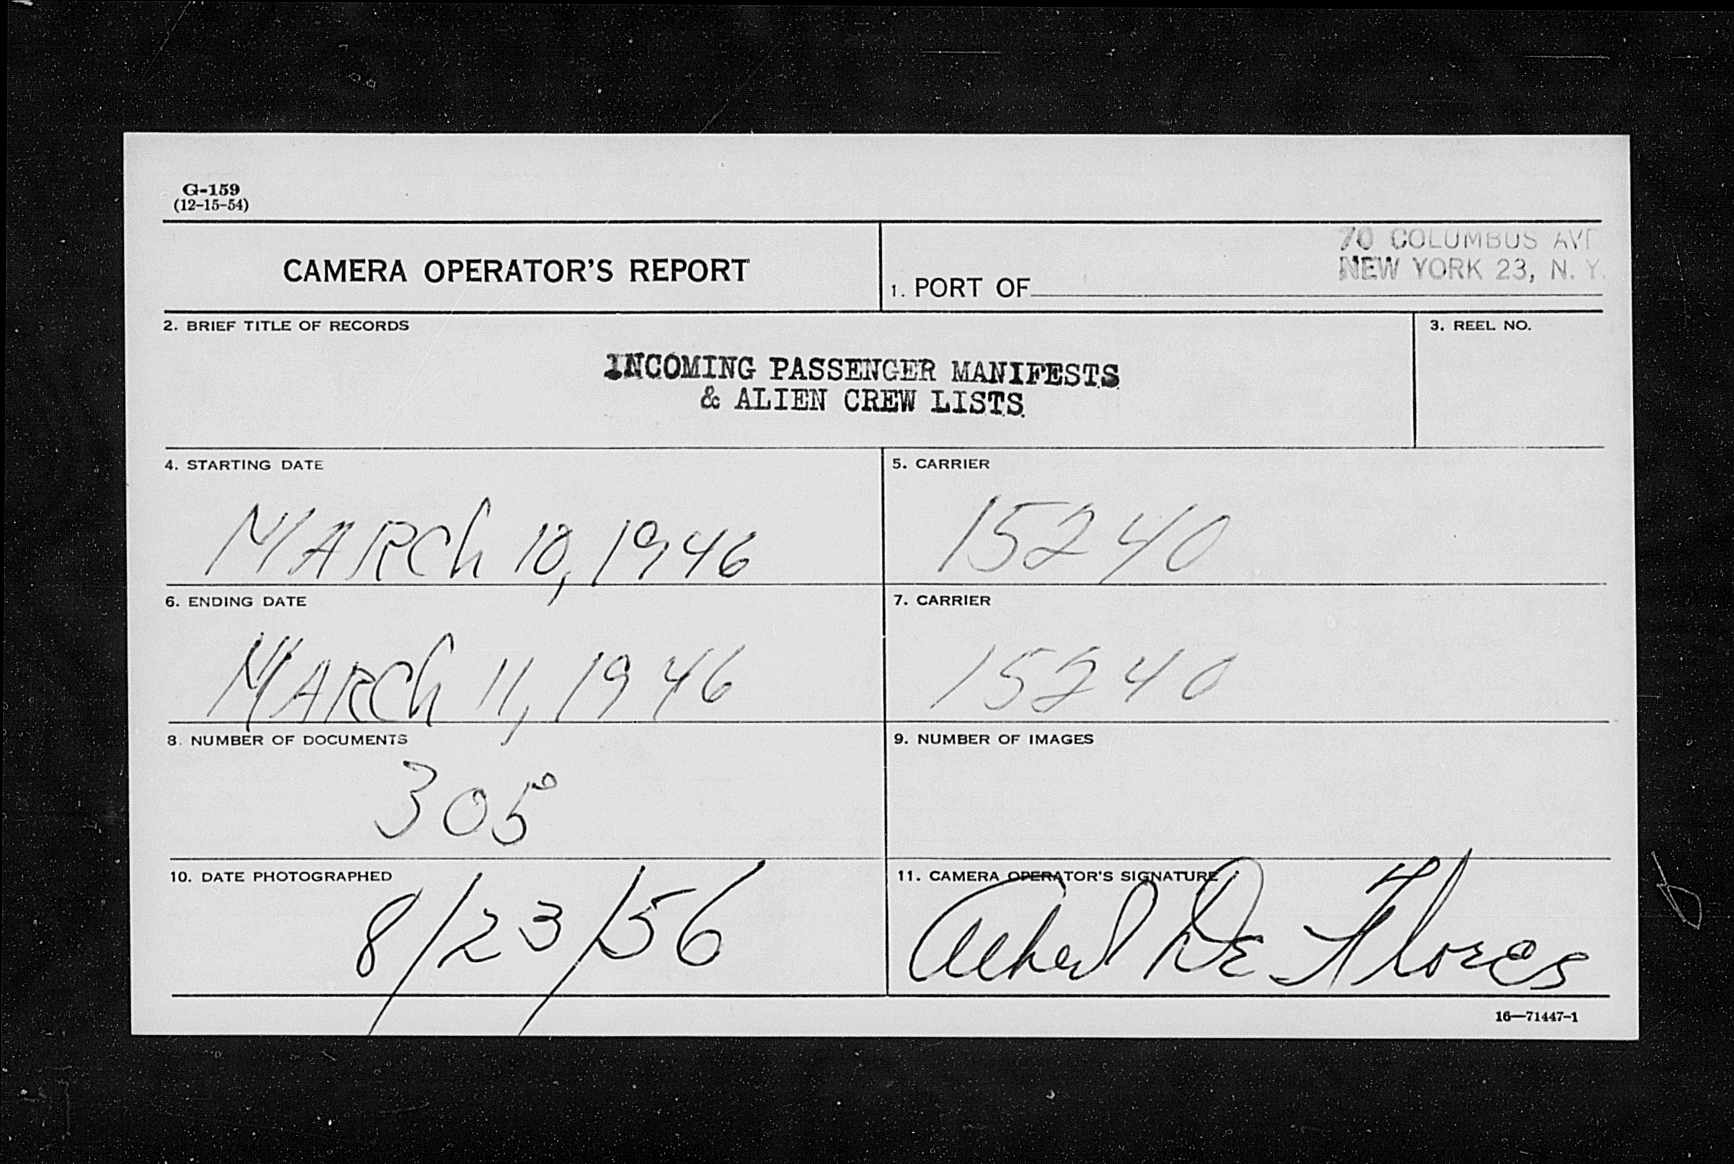 G-159
(12-15-54)
CAMERA OPERATOR'S REPORT
1. PORT OF
70 COLUMBUS AVE
NEW YORK 23, N. Y.
2. BRIEF TITLE OF RECORDS
INCOMING PASSENGER MANIFESTS
& ALIEN CREW LISTS.
3. REEL NO.
4. STARTING DATE
MARCh 10, 1946
5. CARRIER
15240
6. ENDING DATE
MARCh 11, 1946
7. CARRIER
15240
8. NUMBER OF DOCUMENTS
305
9. NUMBER OF IMAGES
10. DATE PHOTOGRAPHED
8/23/56
11. CAMERA OPERATOR'S SIGNATURE
De Flores
16—71447-1